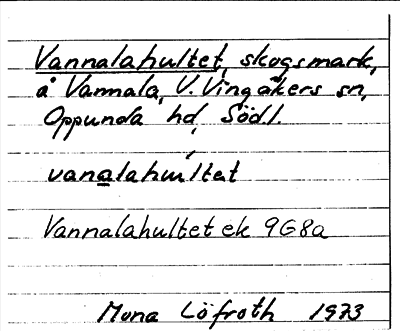 Vannalahultet, skogsmark,
å Vannala, V. Vingåkers sn,
Oppunda hd, Södl.
vanalahultet
Vannalahultet ek 9G8a
Mona Löfroth 1973